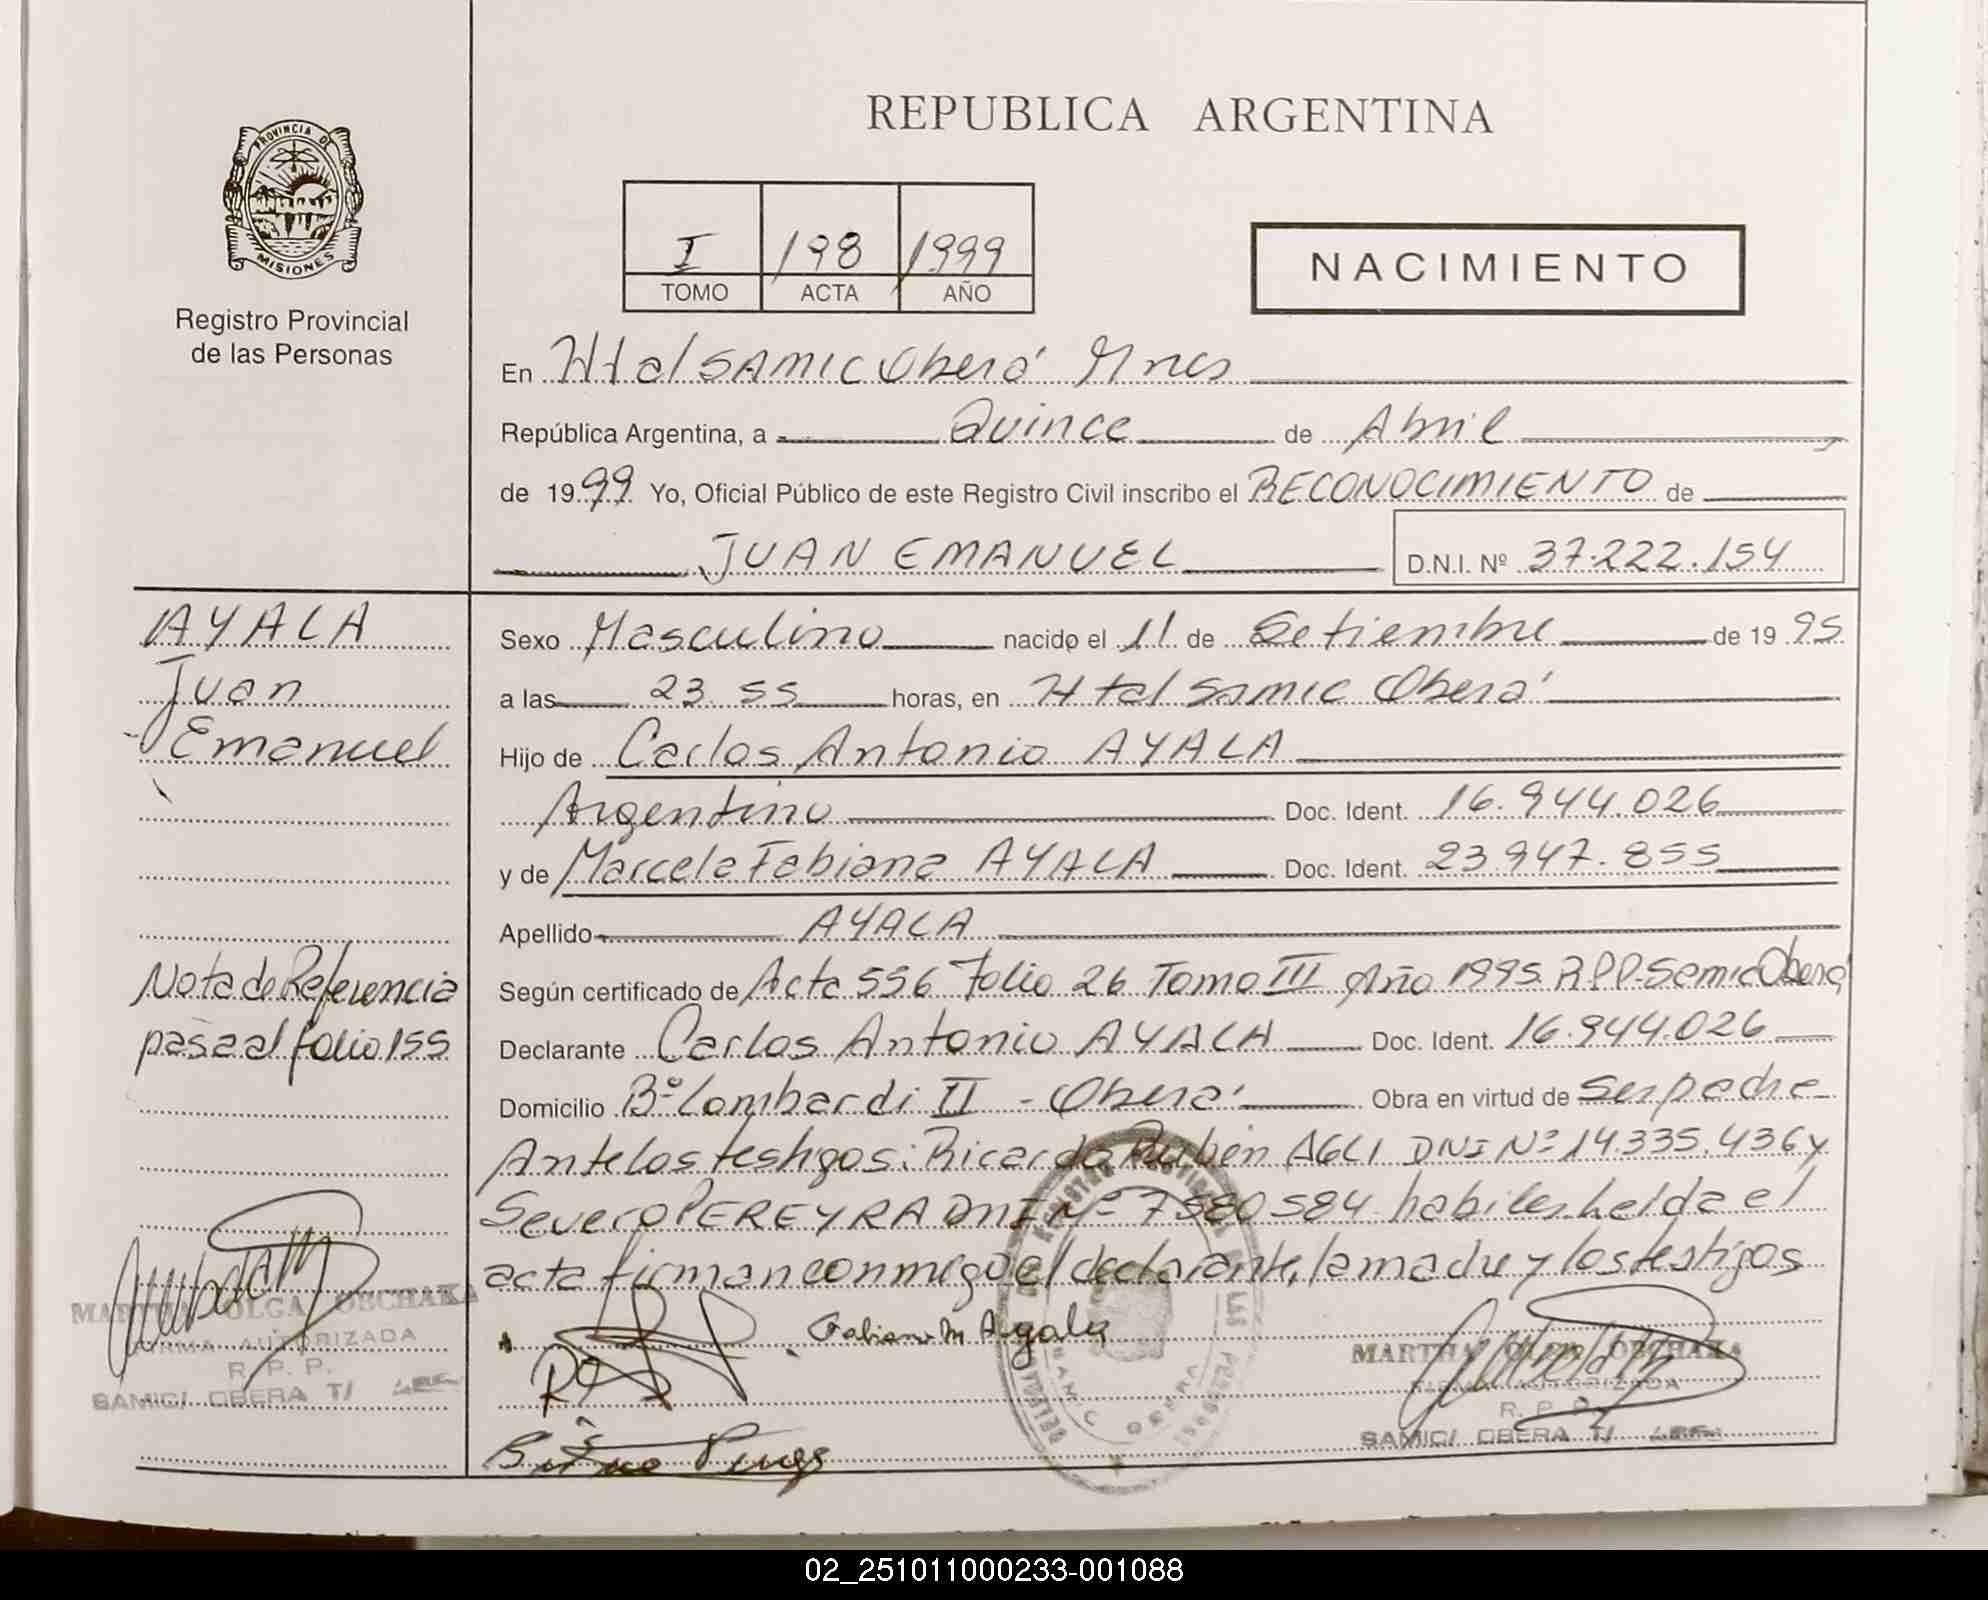 PROVINCIA DE
MISIONES
Registro Provincial
de las Personas
REPUBLICA ARGENTINA
I 198 1999
TOMO ACTA AÑO
NACIMIENTO
En Htal SAMIC Oberá Mnes
República Argentina, a Quince de Abril
de 1999 Yo, Oficial Público de este Registro Civil inscribo el RECONOCIMIENTO de
JUAN EMANUEL D.N.I. Nº 37.222.154
AYALA
Juan
Emanuel
Sexo Masculino nacido el 11 de Setiembre de 1995
a las 23.55 horas, en Htal Samic Oberá
Hijo de Carlos Antonio AYALA
Argentino Doc. Ident. 16.944.026
y de Marcela Fabiana AYALA Doc. Ident. 23.947.855
Apellido AYALA
Nota de Referencia
pasa al folio 155
Según certificado de Acta 556 Folio 26 Tomo III Año 1995 R.P.P. Samic Oberá
Declarante Carlos Antonio AYALA Doc. Ident. 16.944.026
Domicilio Bº Lombardi II - Oberá Obra en virtud de Ser padre
Ante los testigos: Ricardo Rubén AGLI DNI Nº 14.335.436 y
Severo PEREYRA DNI Nº 7580584 habiles. helda el
acta firman conmigo el declarante, la madre y los testigos
Fabiana M Ayala
MARTHA OLGA OBCHAKA
FIRMA AUTORIZADA
R. P. P.
SAMIC/ OBERA T/
MARTHA OLGA OBCHAKA
FIRMA AUTORIZADA
R. P. P.
SAMIC/ OBERA T/
02_251011000233-001088